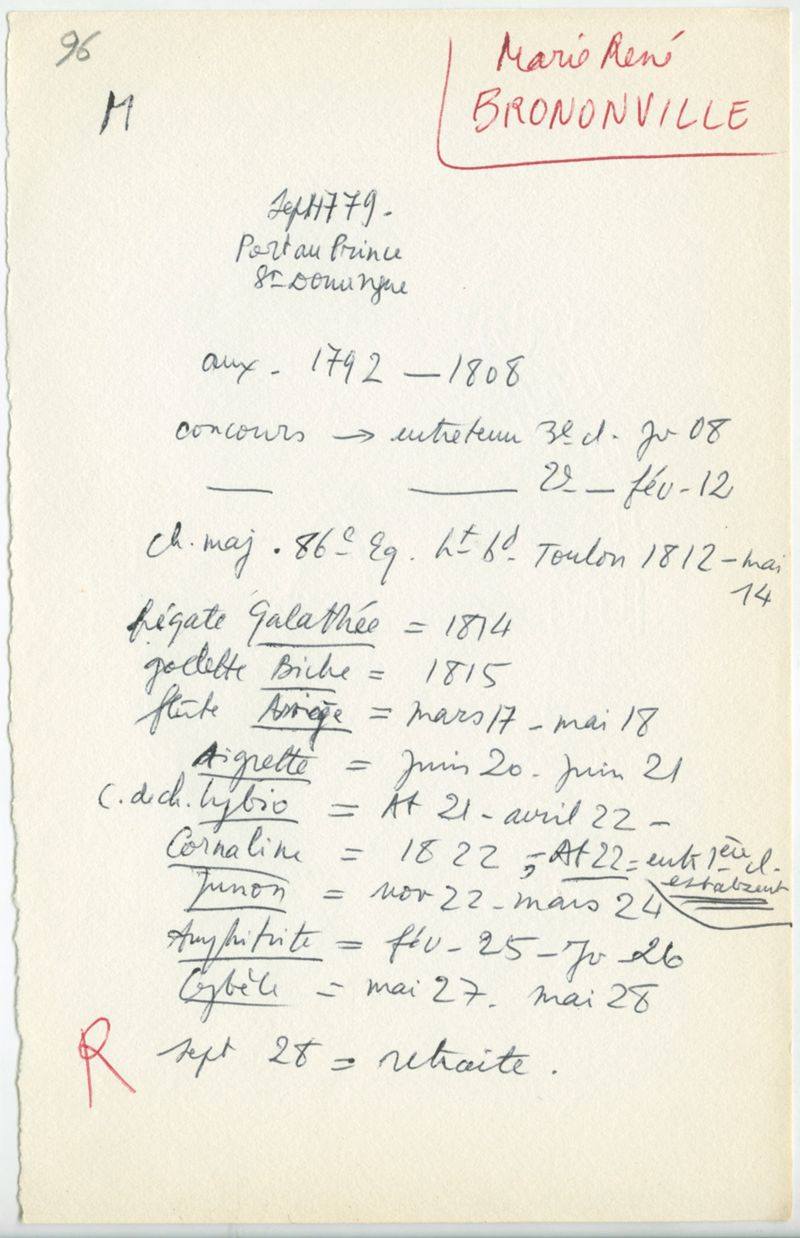 96
Marie René
BRONONVILLE
M
Sept 1779.
Port au Prince
St Domingue
aux. 1792 — 1808
concours → entretenu 3e cl. Jv 08
— — 2e — fév - 12
ch. maj. 86e Eq. ht bd Toulon 1812 - mai
14
frégate Galathée = 1814
goelette Biche = 1815
flûte Ariège = mars 17 - mai 18
Aigrette = Juin 20 - Juin 21
C. de ch. Lybio = At 21 - avril 22 -
Cornaline = 1822 ; At 22 = entr 1ère cl.
est absent
Junon = nov 22 - mars 24
Amphitrite = fév - 25 - Jv 26
Cybèle = mai 27. mai 28
R sept 28 = retraite.